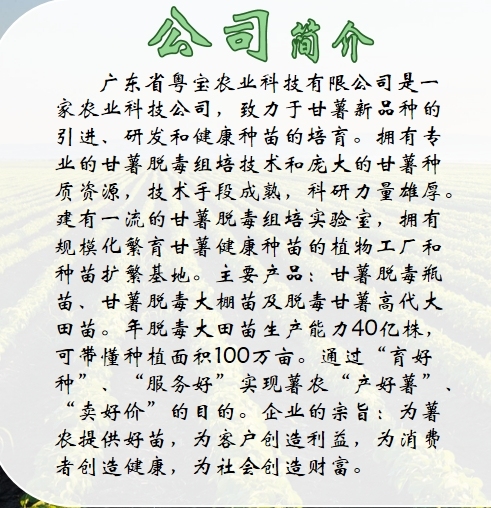 公司简介
广东省粤宝农业科技有限公司是一
家农业科技公司，致力于甘薯新品种的
引进、研发和健康种苗的培育。拥有专
业的甘薯脱毒组培技术和庞大的甘薯种
质资源，技术手段成熟，科研力量雄厚。
建有一流的甘薯脱毒组培实验室，拥有
规模化繁育甘薯健康种苗的植物工厂和
种苗扩繁基地。主要产品：甘薯脱毒瓶
苗、甘薯脱毒大棚苗及脱毒甘薯高代大
田苗。年脱毒大田苗生产能力40亿株，
可带懂种植面积100万亩。通过“育好
种”、“服务好”实现薯农“产好薯”、
“卖好价”的目的。企业的宗旨：为薯
农提供好苗，为客户创造利益，为消费
者创造健康，为社会创造财富。